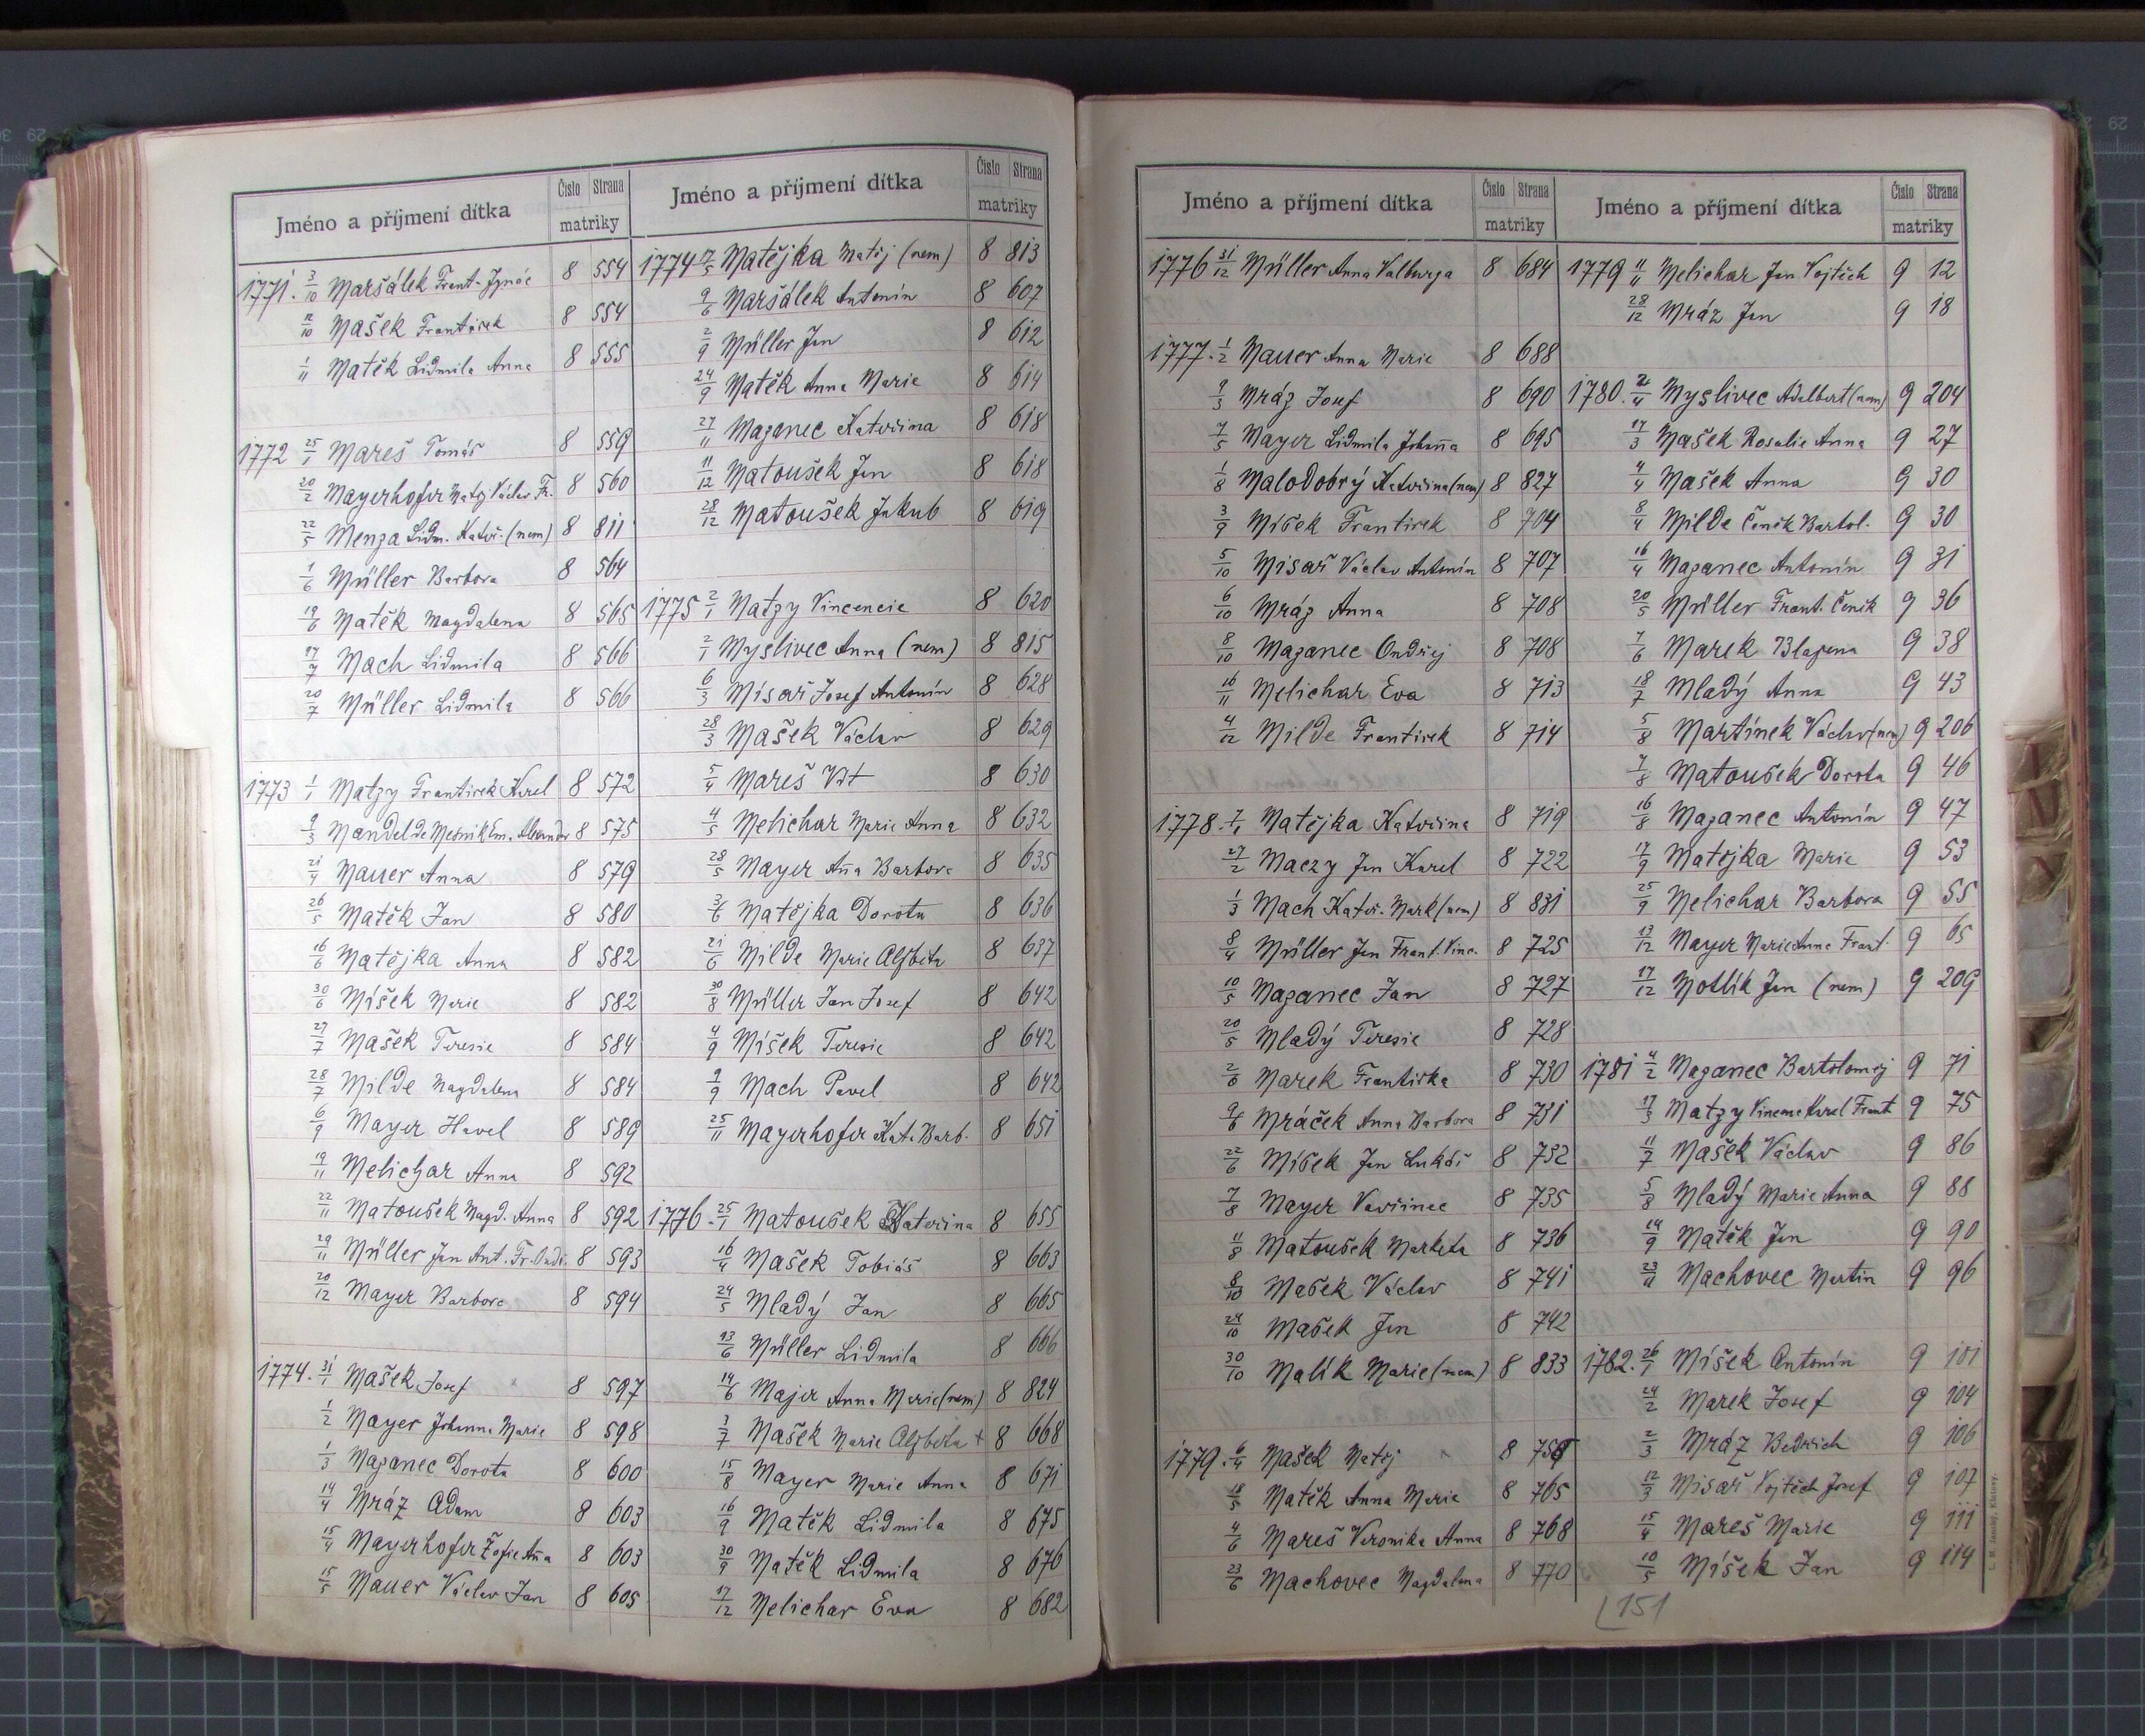 Jméno a příjmení dítka Číslo Strana matriky
1771. 3/10 Maršálek Frant. Ignác 8 554
12/10 Mašek František 8 554
1/11 Matěk Lidmila Anna 8 555
1772 25/1 Mareš Tomáš 8 559
20/2 Mayerhofer Matěj Václav Fr. 8 560
22/5 Menza Lidm. Kateř. (nem) 8 811
1/6 Müller Barbora 8 564
19/6 Matěk Magdalena 8 565
17/7 Mach Lidmila 8 566
20/7 Müller Lidmila 8 566
1773 1/1 Matzy František Karel 8 572
9/3 Mandel de Em. 8 575
21/4 Mauer Anna 8 579
26/5 Matěk Jan 8 580
16/6 Matějka Anna 8 582
30/6 Míšek Marie 8 582
27/7 Mašek Teresie 8 584
28/7 Milde Magdalena 8 584
6/9 Mayer Havel 8 589
19/11 Melichar Anna 8 592
22/11 Matoušek Magd. Anna 8 592
29/11 Müller Jan Ant. Fr. Ondř. 8 593
20/12 Mayer Barbora 8 594
1774. 31/1 Mašek Josef 8 597
1/2 Mayer Johanna Marie 8 598
1/3 Mazanec Dorota 8 600
14/4 Mráz Adam 8 603
15/4 Mayerhofer Žofie Aña 8 603
15/5 Mauer Václav Jan 8 605
Jméno a příjmení dítka Číslo Strana matriky
1774 Matějka Matěj (nem) 8 813
9/6 Maršálek Antonín 8 607
2/9 Müller Jan 8 612
24/9 Matěk Anna Marie 8 614
27/11 Mazanec Kateřina 8 618
11/12 Matoušek Jan 8 618
28/12 Matoušek Jakub 8 619
1775 2/1 Matzy Vincencie 8 620
2/1 Myslivec Anna (nem) 8 815
6/3 Mísař Josef Antonín 8 628
28/3 Mašek Václav 8 629
5/4 Mareš Vít 8 630
4/5 Melichar Marie Anna 8 632
28/5 Mayer Aña Barbora 8 635
3/6 Matějka Dorota 8 636
21/6 Milde Marie Alžběta 8 637
30/8 Müller Jan Josef 8 642
4/9 Míšek Teresie 8 642
9/9 Mach Pavel 8 642
25/11 Mayerhofer Kat. Barb. 8 651
1776. 25/1 Matoušek Kateřina 8 655
16/4 Mašek Tobiáš 8 663
24/5 Mladý Jan 8 665
13/6 Müller Lidmila 8 666
14/6 Majer Anna Marie (nem) 8 824
3/7 Mašek Marie Alžběta + 8 668
15/8 Mayer Marie Anna 8 671
16/9 Matěk Lidmila 8 675
30/9 Matěk Lidmila 8 676
17/12 Melichar Eva 8 682
Jméno a příjmení dítka Číslo Strana matriky
1776 31/12 Müller Anna Valburga 8 684
1777. 1/2 Mauer Anna Marie 8 688
9/3 Mráz Josef 8 690
7/5 Mayer Lidmila Johaña 8 695
1/8 Malodobrý Kateřina (nem) 8 827
3/9 Míšek František 8 704
5/10 Misař Václav Antonín 8 707
6/10 Mráz Anna 8 708
8/10 Mazanec Ondřej 8 708
16/11 Melichar Eva 8 713
4/12 Milde František 8 714
1778. Matějka Kateřina 8 719
27/2 Maczy Jan Karel 8 722
1/3 Mach Kateř. Mark (nem) 8 831
8/4 Müller Jan Frant. Vinc. 8 725
10/5 Mazanec Jan 8 727
20/5 Mladý Teresie 8 728
2/6 Marek Františka 8 730
9/6 Mráček Anna Barbora 8 731
22/6 Míšek Jan Lukáš 8 732
7/8 Mayer Vavřinec 8 735
11/8 Matoušek Marketa 8 736
8/10 Mašek Václav 8 741
24/10 Mašek Jan 8 742
30/10 Malík Marie (nem) 8 833
1779. 6/4 Mašek Matěj 8
18/5 Matěk Anna Marie 8 765
4/6 Mareš Veronika Anna 8 768
23/6 Machovec Magdalena 8 770
Jméno a příjmení dítka Číslo Strana matriky
1779 Melichar Jan Vojtěch 9 12
28/12 Mráz Jan 9 18
1780. Myslivec Adalbert (nem) 9 204
17/3 Mašek Rosalie Anna 9 27
4/4 Mašek Anna 9 30
8/4 Milde Čeněk Bartol. 9 30
16/4 Mazanec Antonín 9 31
20/5 Müller Frant. Čeněk 9 36
7/6 Marek Blažena 9 38
18/7 Mladý Anna 9 43
5/8 Martínek Václav (nem) 9 206
7/8 Matoušek Dorota 9 46
16/8 Mazanec Antonín 9 47
17/9 Matějka Marie 9 53
25/9 Melichar Barbora 9 55
13/12 Mayer Marie Anna Frant. 9 65
17/12 Motlík Jan (nem) 9 209
1781 4/2 Mazanec Bartoloměj 9 71
17/3 Matzy Vincenc Karel Frant 9 75
11/7 Mašek Václav 9 86
5/8 Mladý Marie Anna 9 88
14/9 Matěk Jan 9 90
23/11 Machovec Martin 9 96
1782. 26/1 Míšek Antonín 9 101
24/2 Marek Josef 9 104
2/3 Mráz Bedřich 9 106
12/3 Misař Vojtěch Josef 9 107
15/4 Mareš Marie 9 111
10/5 Míšek Jan 9 114
151